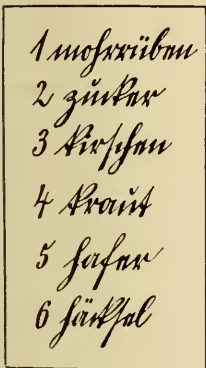 1 mohrrüben
2 zucker
3 kirschen
4 kraut
5 hafer
6 häcksel